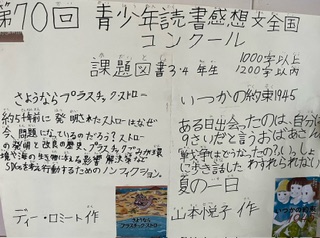 第70回 青少年読書感想文全国
コンクール
課題図書3・4年生
1000字以上
1200字以内
さようならプラスチックストロー
約5千年前に発明されたストローはなぜ
今、問題になっているのだろう?ストロー
の発明と改良の歴史、プラスチックごみが環
境や海の生き物に与える影響、解決策など
SDGsを考え行動するためのノンフィクション。
ディー・ロミート作
いつかの約束1945
ある日出会ったのは、自分は
9さいだと言うおばあさん。
戦争はどうなったの?いっしょ
に歩き話したわすれられない
夏の一日
山本悦子 作
さようなら
プラスチックストロー